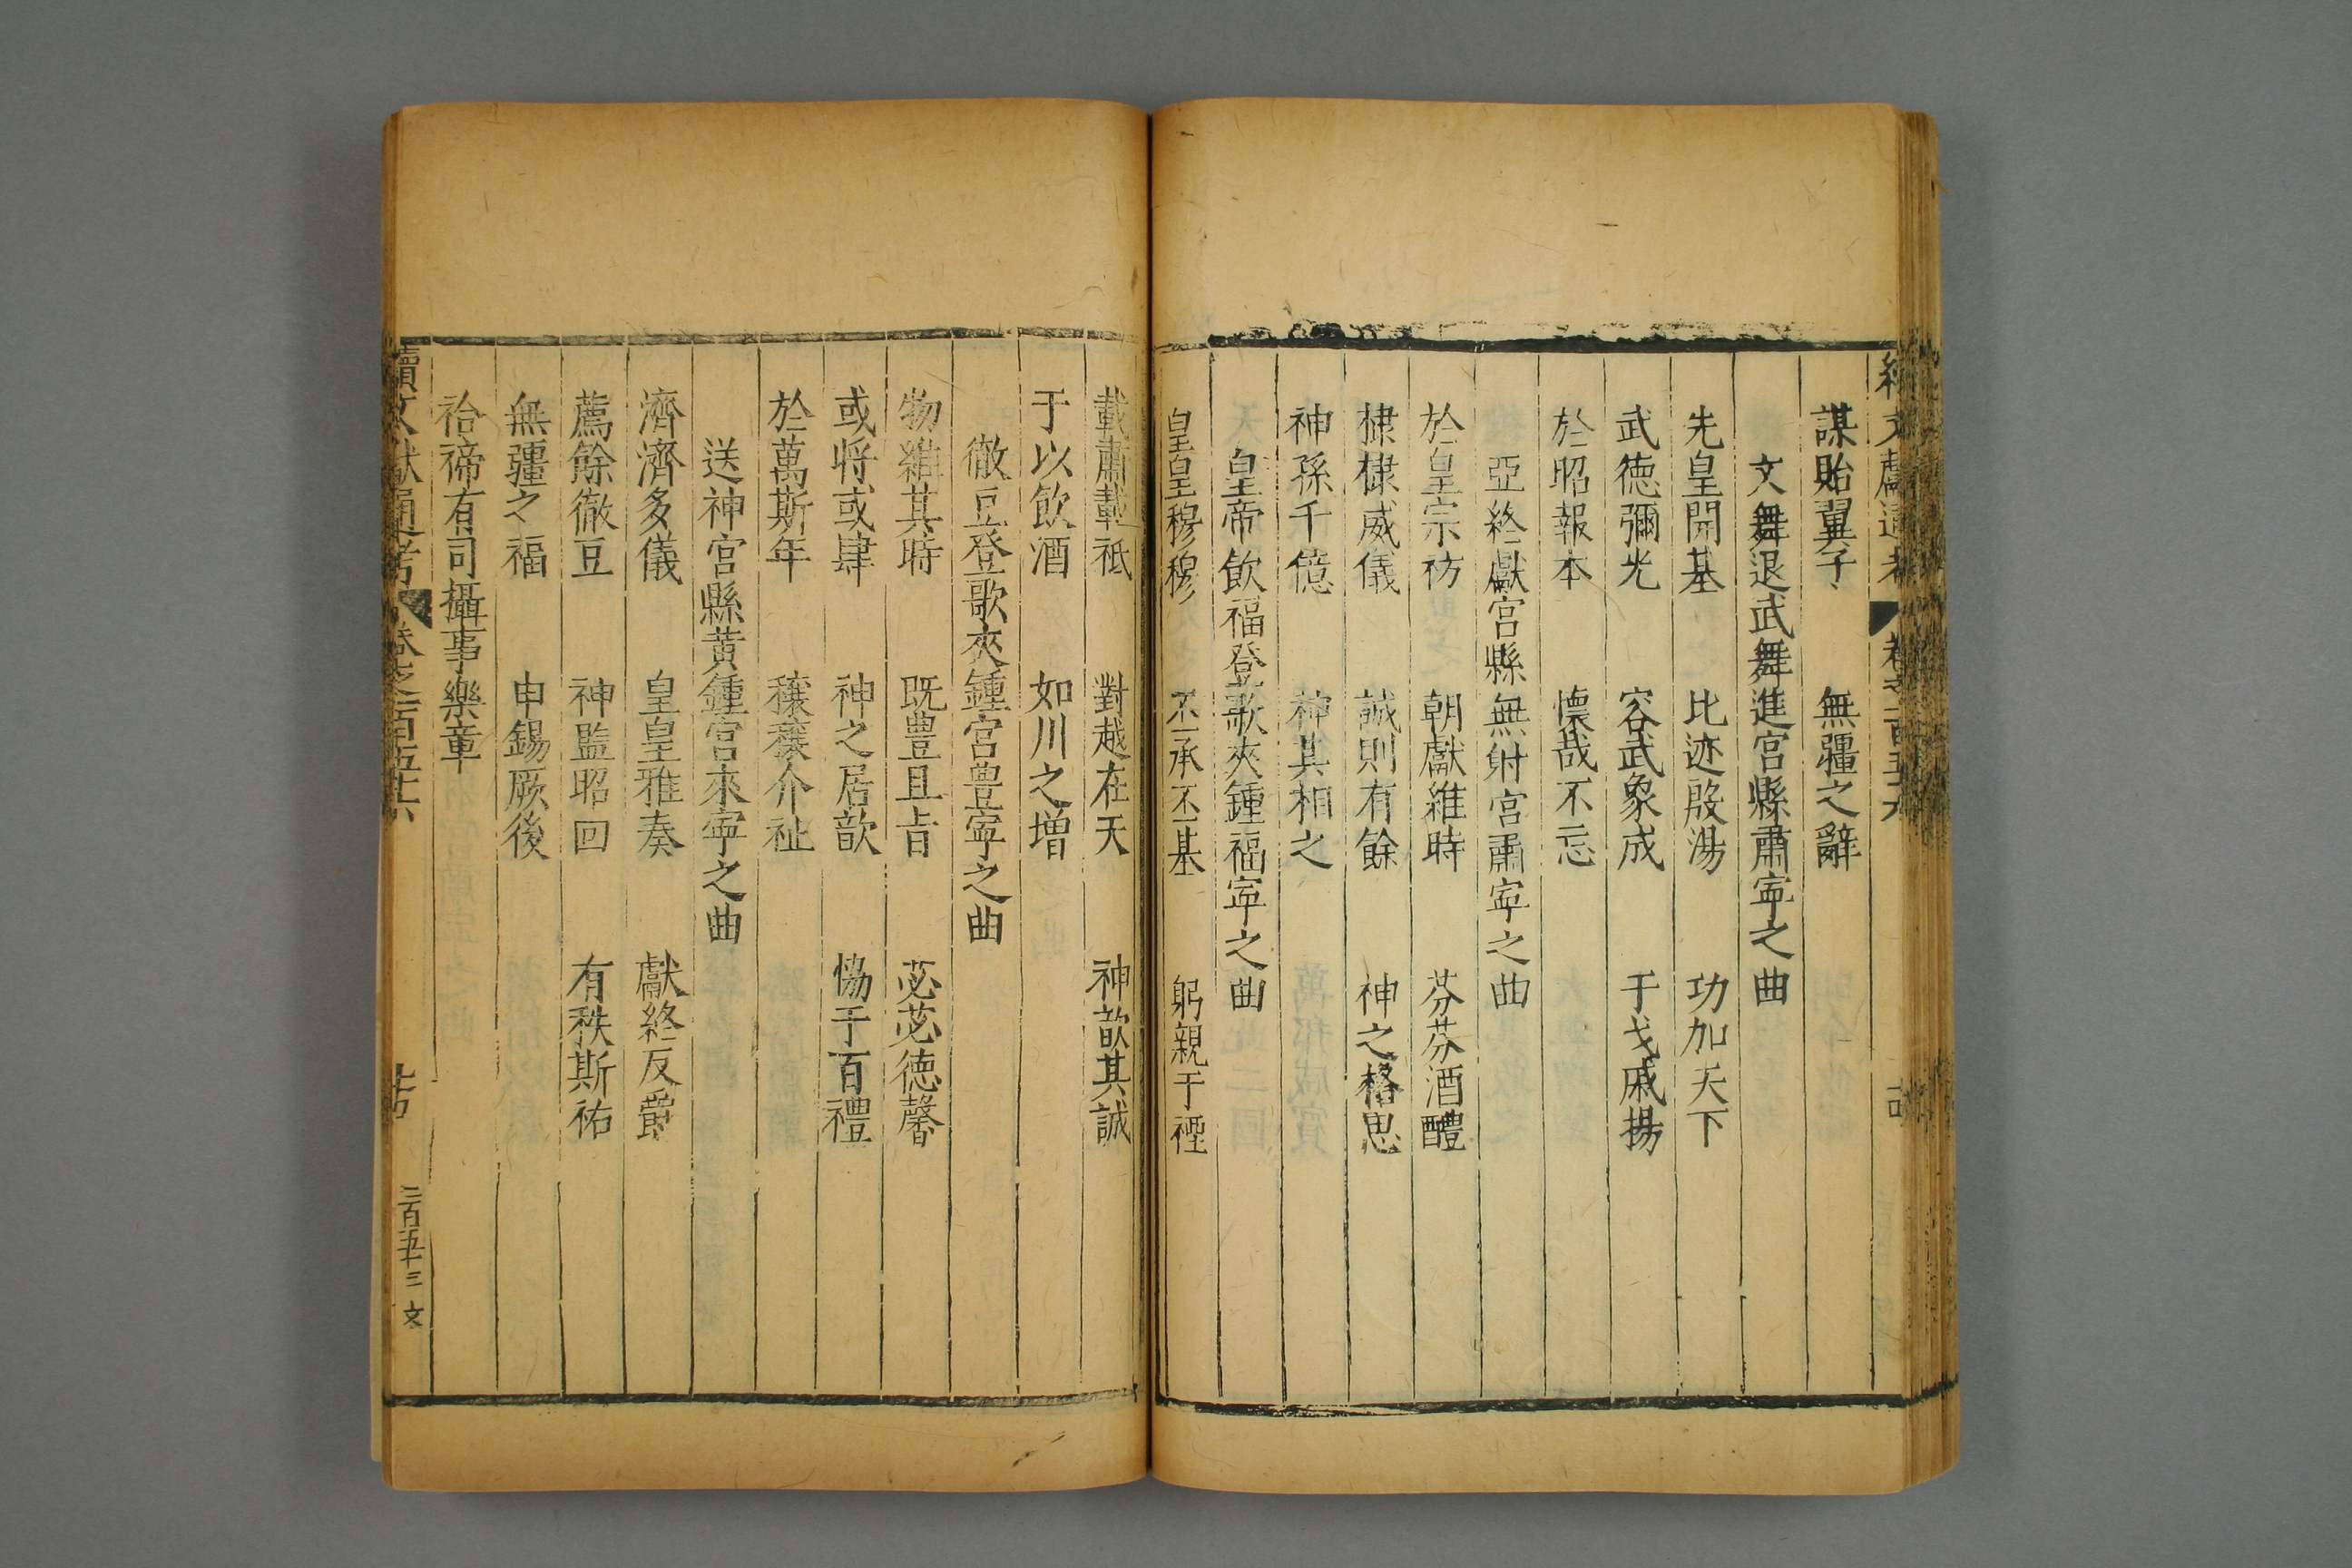 謀貽翼子 無疆之辭
文舞退武舞進宮縣肅寧之曲
先皇開基 比迹殷湯 功加天下
武德彌光 容武象成 干戈戚揚
於昭報本 懷哉不忘
亞終獻宮縣無射宮肅寧之曲
於皇宗祊 朝獻維時 芬芬酒醴
棣棣威儀 誠則有餘 神之格思
神孫千億 神其相之
皇帝飲福登歌夾鍾福寧之曲
皇皇穆穆 丕承丕基 躬親于禋
載肅載祗 對越在天 神歆其誠
于以飲酒 如川之增
徹豆登歌夾鍾宮豊寧之曲
物維其時 既豊且旨 苾苾德馨
或將或肆 神之居歆 恊于百禮
於萬斯年 穰穰介祉
送神宮縣黃鍾宮來寧之曲
濟濟多儀 皇皇雅奏 獻終反爵
薦餘徹豆 神監昭回 有秩斯祐
無疆之福 申錫厥後
祫禘有司攝事樂章
續文獻通考 卷之一百五十六 二百五十三 文